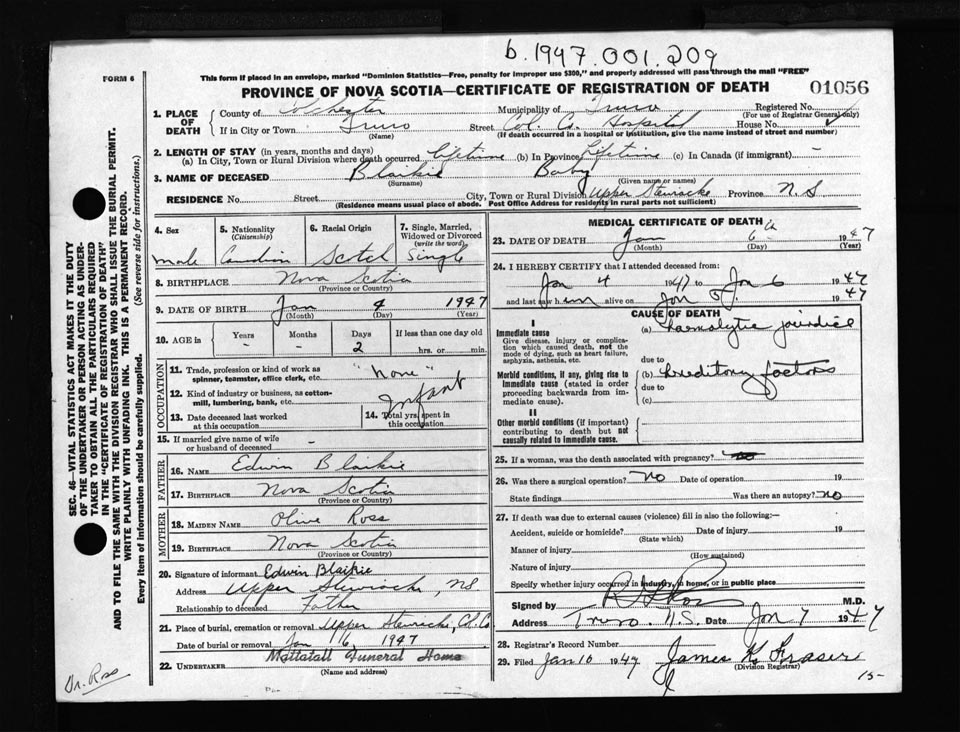 b.1947.001.209
FORM 6
This form if placed in an envelope, marked "Dominion Statistics—Free, penalty for improper use $300," and properly addressed will pass through the mail "FREE"
PROVINCE OF NOVA SCOTIA—CERTIFICATE OF REGISTRATION OF DEATH 01056
1. PLACE OF DEATH County of Colchester Municipality of Truro Registered No.
(For use of Registrar General only)
If in City or Town Truro Street Col. Co. Hospital House No.
(Name) (If death occurred in a hospital or institution, give the name instead of street and number)
2. LENGTH OF STAY (in years, months and days)
(a) In City, Town or Rural Division where death occurred lifetime (b) In Province lifetime (c) In Canada (if immigrant) -
3. NAME OF DECEASED Blaikie Baby
(Surname) (Given name or names)
RESIDENCE No. Street City, Town or Rural Division Upper Stewiacke Province N.S
(Residence means usual place of abode. Post Office Address for residents in rural parts not sufficient)
4. Sex 5. Nationality (Citizenship) 6. Racial Origin 7. Single, Married, Widowed or Divorced (write the word)
male Canadian Scotch Single
8. BIRTHPLACE Nova Scotia
(Province or Country)
9. DATE OF BIRTH Jan 4 1947
(Month) (Day) (Year)
10. AGE in Years Months Days If less than one day old
- 2 hrs. or min.
OCCUPATION
11. Trade, profession or kind of work as spinner, teamster, office clerk, etc. "None"
12. Kind of industry or business, as cotton-mill, lumbering, bank, etc. Infant
13. Date deceased last worked at this occupation 14. Total yrs. spent in this occupation
15. If married give name of wife or husband of deceased -
FATHER
16. NAME Edwin Blaikie
17. BIRTHPLACE Nova Scotia
(Province or Country)
MOTHER
18. MAIDEN NAME Olive Ross
19. BIRTHPLACE Nova Scotia
(Province or Country)
20. Signature of informant Edwin Blaikie
Address Upper Stewiacke, NS
Relationship to deceased Father
21. Place of burial, cremation or removal Upper Stewiacke, Col. Co
Date of burial or removal Jan 6 1947
22. UNDERTAKER Mattatall Funeral Home
(Name and address)
MEDICAL CERTIFICATE OF DEATH
23. DATE OF DEATH Jan 6th 1947
(Month) (Day) (Year)
24. I HEREBY CERTIFY that I attended deceased from:
Jan 4 1947 to Jan 6 1947
and last saw him alive on Jan 1947
CAUSE OF DEATH
I
Immediate cause (a) haemolytic jaundice
Give disease, injury or complication which caused death, not the mode of dying, such as heart failure, asphyxia, asthenia, etc.
due to
Morbid conditions, if any, giving rise to immediate cause (stated in order proceeding backwards from immediate cause). (b) hereditary factors
due to
(c)
II
Other morbid conditions (if important) contributing to death but not causally related to immediate cause.
25. If a woman, was the death associated with pregnancy? no
26. Was there a surgical operation? no Date of operation 19
State findings Was there an autopsy? no
27. If death was due to external causes (violence) fill in also the following:—
Accident, suicide or homicide? Date of injury 19
(State which)
Manner of injury
(How sustained)
Nature of injury
Specify whether injury occurred in industry, in home, or in public place
Signed by M.D.
Address Truro. N.S. Date Jan 7 1947
28. Registrar's Record Number
29. Filed Jan 10 1947 James Fraser
(Division Registrar)
15-
SEC. 46—VITAL STATISTICS ACT MAKES IT THE DUTY
OF THE UNDERTAKER OR PERSON ACTING AS UNDER-
TAKER TO OBTAIN ALL THE PARTICULARS REQUIRED
IN THE "CERTIFICATE OF REGISTRATION OF DEATH"
AND TO FILE THE SAME WITH THE DIVISION REGISTRAR WHO SHALL ISSUE THE BURIAL PERMIT.
WRITE PLAINLY WITH UNFADING INK. THIS IS A PERMANENT RECORD.
Every item of information should be carefully supplied. (See reverse side for instructions.)
Dr. Ross